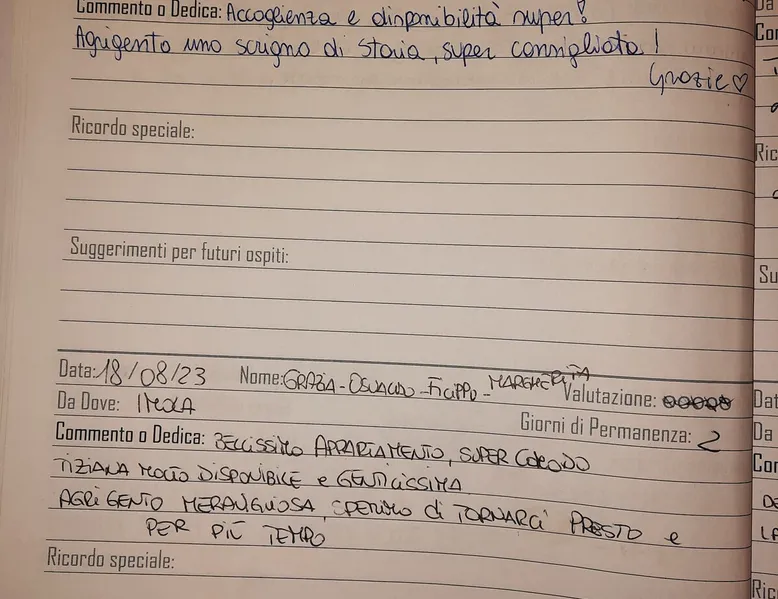 Commento o Dedica: Accoglienza e disponibilità super!
Agrigento uno scrigno di storia, super consigliata!
Grazie ♡
Ricordo speciale:
Suggerimenti per futuri ospiti:
Data: 18/08/23 Nome: GRAZIA - OSVALDO - FILIPPO - MARGHERITA Valutazione:
Da Dove: IMOLA Giorni di Permanenza: 2
Commento o Dedica: BELLISSIMO APPARTAMENTO, SUPER COMODO
TIZIANA MOLTO DISPONIBILE e GENTILISSIMA
AGRIGENTO MERAVIGLIOSA, SPERIAMO di TORNARCI PRESTO e
PER PIÙ TEMPO
Ricordo speciale: